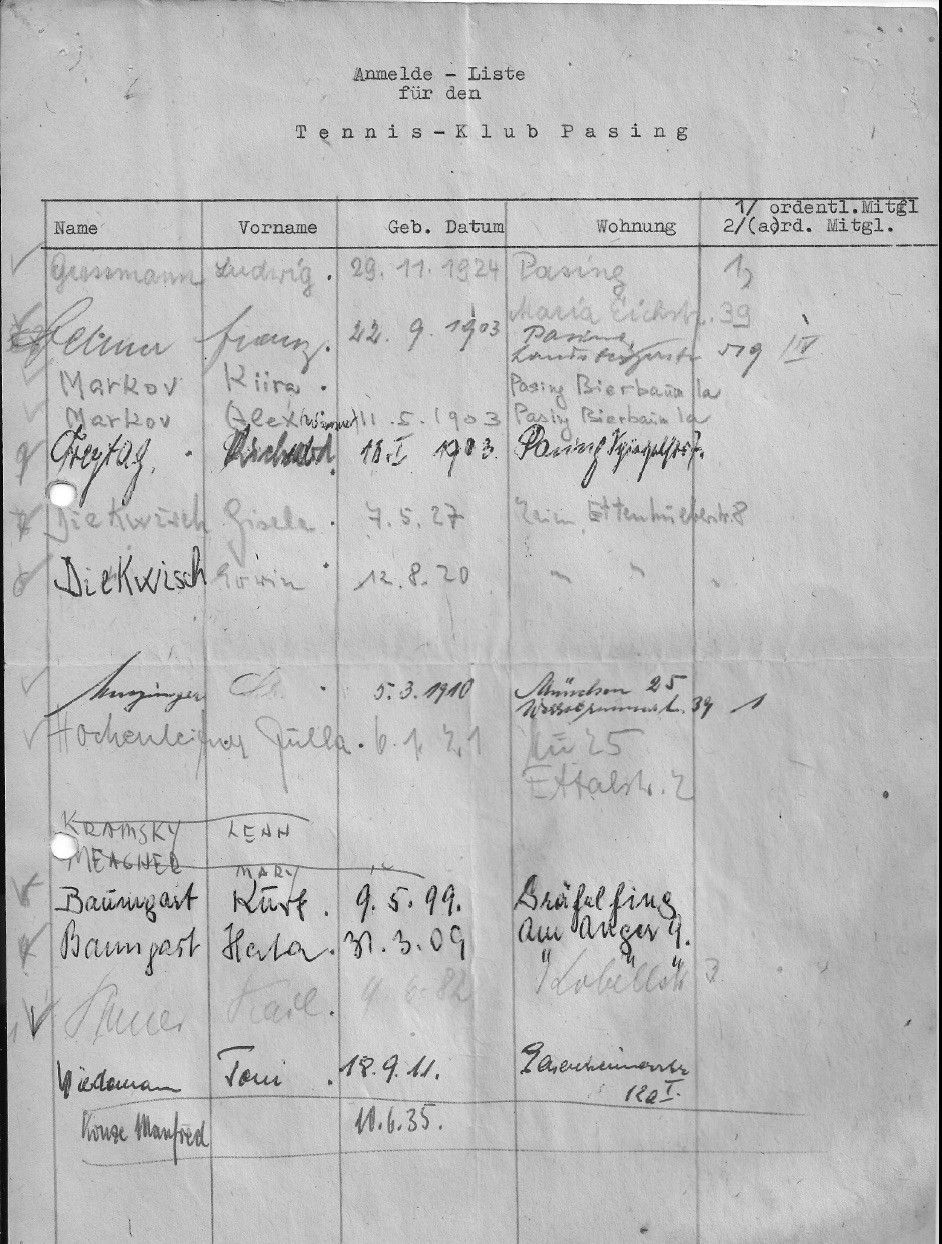 Anmelde - Liste
für den
Tennis-Klub Pasing
1/ ordentl.Mitgl
Name Vorname Geb. Datum Wohnung 2/(a)rd. Mitgl.
Grossmann Ludwig. 29.11.1924 Pasing 1
Maria Eichstr. 39
Franz. 22.9.1903 Pasing
Landsbergerstr 519 IV
Markov Kiira. Pasing Bierbaum 1a
Markov Alex 11.5.1903 Pasing Bierbaum 1a
Freytag. 18.I 1903. Pasing
Diekwisch Gisela. 7.5.27 8
Diekwisch Erwin 12.8.20 " "
5.3.1910 München 25
39 1
6.1.21 Mü 25
Ettalstr. 2
KRAMSKY LENN
MEAGHER MARY
Baumgart Kurt. 9.5.99. Gräfelfing
Am Anger 9.
Baumgart Herta. 31.3.09 " " "
Karl. 9.6.82 Kobellstr 3
Wiedemann Toni. 18.9.11.
12a I.
Manfred 10.6.35.